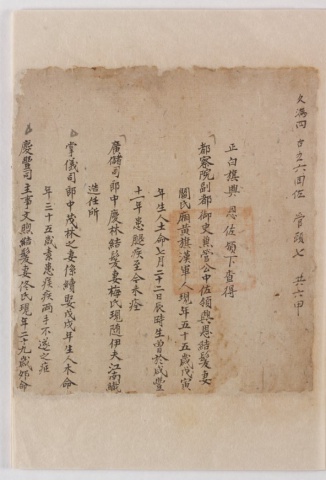 正白旗興恩佐領下查得
都察院副都御史兼管公中佐領興恩結髮妻
關氏廂黃旗漢軍人現年五十五歲戊寅
年生人土命七月二十二日辰時生曾於咸豐
十一年患腿疾至今未痊
廣儲司郎中慶林結髮妻梅氏現隨伊夫江南織
造任所
掌儀司郎中茂林之妻係續娶戊戌年生人木命
年三十五歲素患痰疾兩手不遂之症
慶豐司主事文煦結髮妻佟氏現年二十九歲邪命